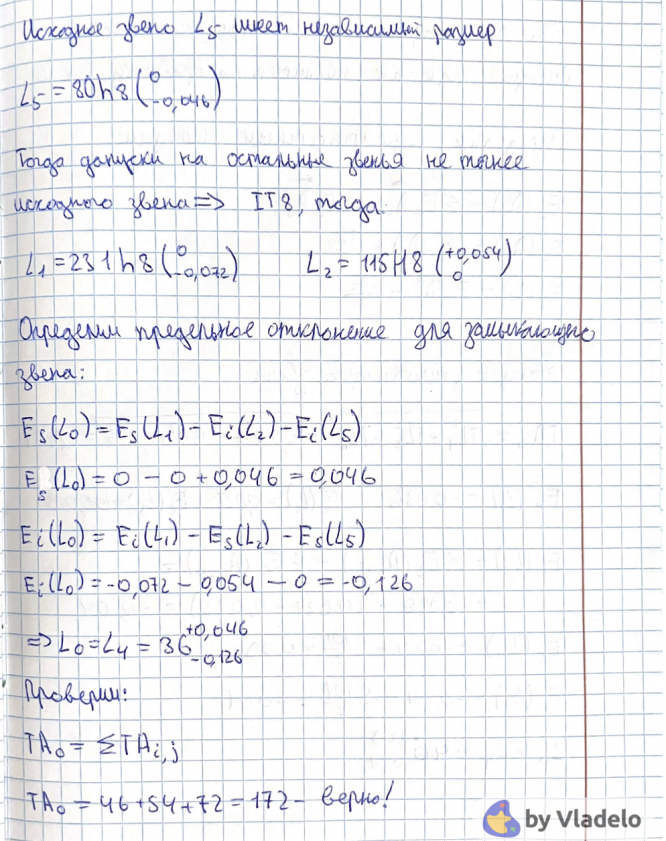 Исходное звено L₅ имеет независимый размер
L₅ = 80h8 (0 -0,046)
Тогда допуски на остальные звенья не точнее
исходного звена => IT8, тогда.
L₁ = 231h8 (0 -0,072) L₂ = 115H8 (+0,054 0)
Определим предельное отклонение для замыкающего
звена:
Es(L₀) = Es(L₁) - Ei(L₂) - Ei(L₅)
Es(L₀) = 0 - 0 + 0,046 = 0,046
Ei(L₀) = Ei(L₁) - Es(L₂) - Es(L₅)
Ei(L₀) = -0,072 - 0,054 - 0 = -0,126
=> L₀ = L₄ = 36 +0,046 -0,126
Проверим:
TA₀ = ΣTAi,j
TA₀ = 46 + 54 + 72 = 172 - верно!
by Vladelo